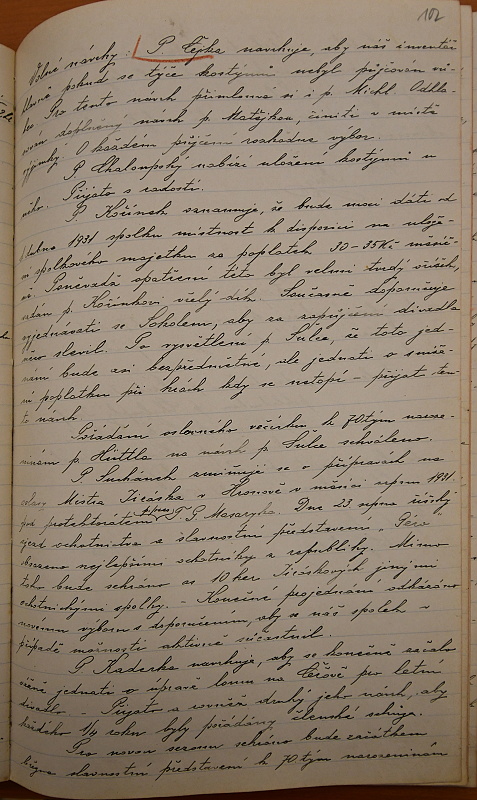 102
Volné návrhy: P. Čepka navrhuje, aby náš inventář
hlavně pokud se týče kostýmů nebyl půjčován ni-
kde. Pro tento návrh přimlouvá se i p. Michl. Odhla-
sován doplněný návrh p. Matějkou, činiti v místě
výjimky. O každém půjčení rozhodne výbor.
P. Chaloupský nabízí uložení kostýmů u
něho. Přijato s radostí.
P. Kořínek oznamuje, že bude moci dáti od
1. dubna 1931 spolku místnost k disposici na ulože-
ní spolkového majetku za poplatek 30-35 Kč měsíč-
ně. Poněvadž opatření této byl velmi tvrdý oříšek,
vzdán p. Kořínkovi vřelý dík. Současně doporučuje
vyjednávati se Sokolem, aby za zapůjčení divadla
něco slevil. Po vysvětlení p. Šulce, že toto jed-
nání bude asi bezpředmětné, ale jednati o sníže-
ní poplatku při hrách kdy se netopí - přijat ten-
to návrh.
Pořádání oslavného večírku k 70tým naroze-
ninám p. Hüttla na návrh p. Šulce schváleno.
P. Suchánek zmiňuje se o přípravách na
oslavy Mistra Jiráska v Hronově v měsíci srpnu 1931.
pod protektorátem T. G. Masaryka. Dne 23. srpna
sjezd ochotnictva a slavnostní představení "
obsazeno nejlepšími ochotníky z republiky. Mimo
toho bude sehráno as 10 her Jiráskových jinými
ochotnickými spolky. - Konečné projednání odkázáno
novému výboru s doporučením, aby se náš spolek v
případě možnosti aktivně súčastnil.
P. Kaderka navrhuje, aby se konečně začalo
vážně jednati o úpravě lomu na pro letní
divadlo. - Přijato a rovněž druhý jeho návrh, aby
každého 1/4 roku byly pořádány členské schůze.
Pro novou sezonu sehráno bude začátkem
října slavnostní představení k 70.tým narozeninám